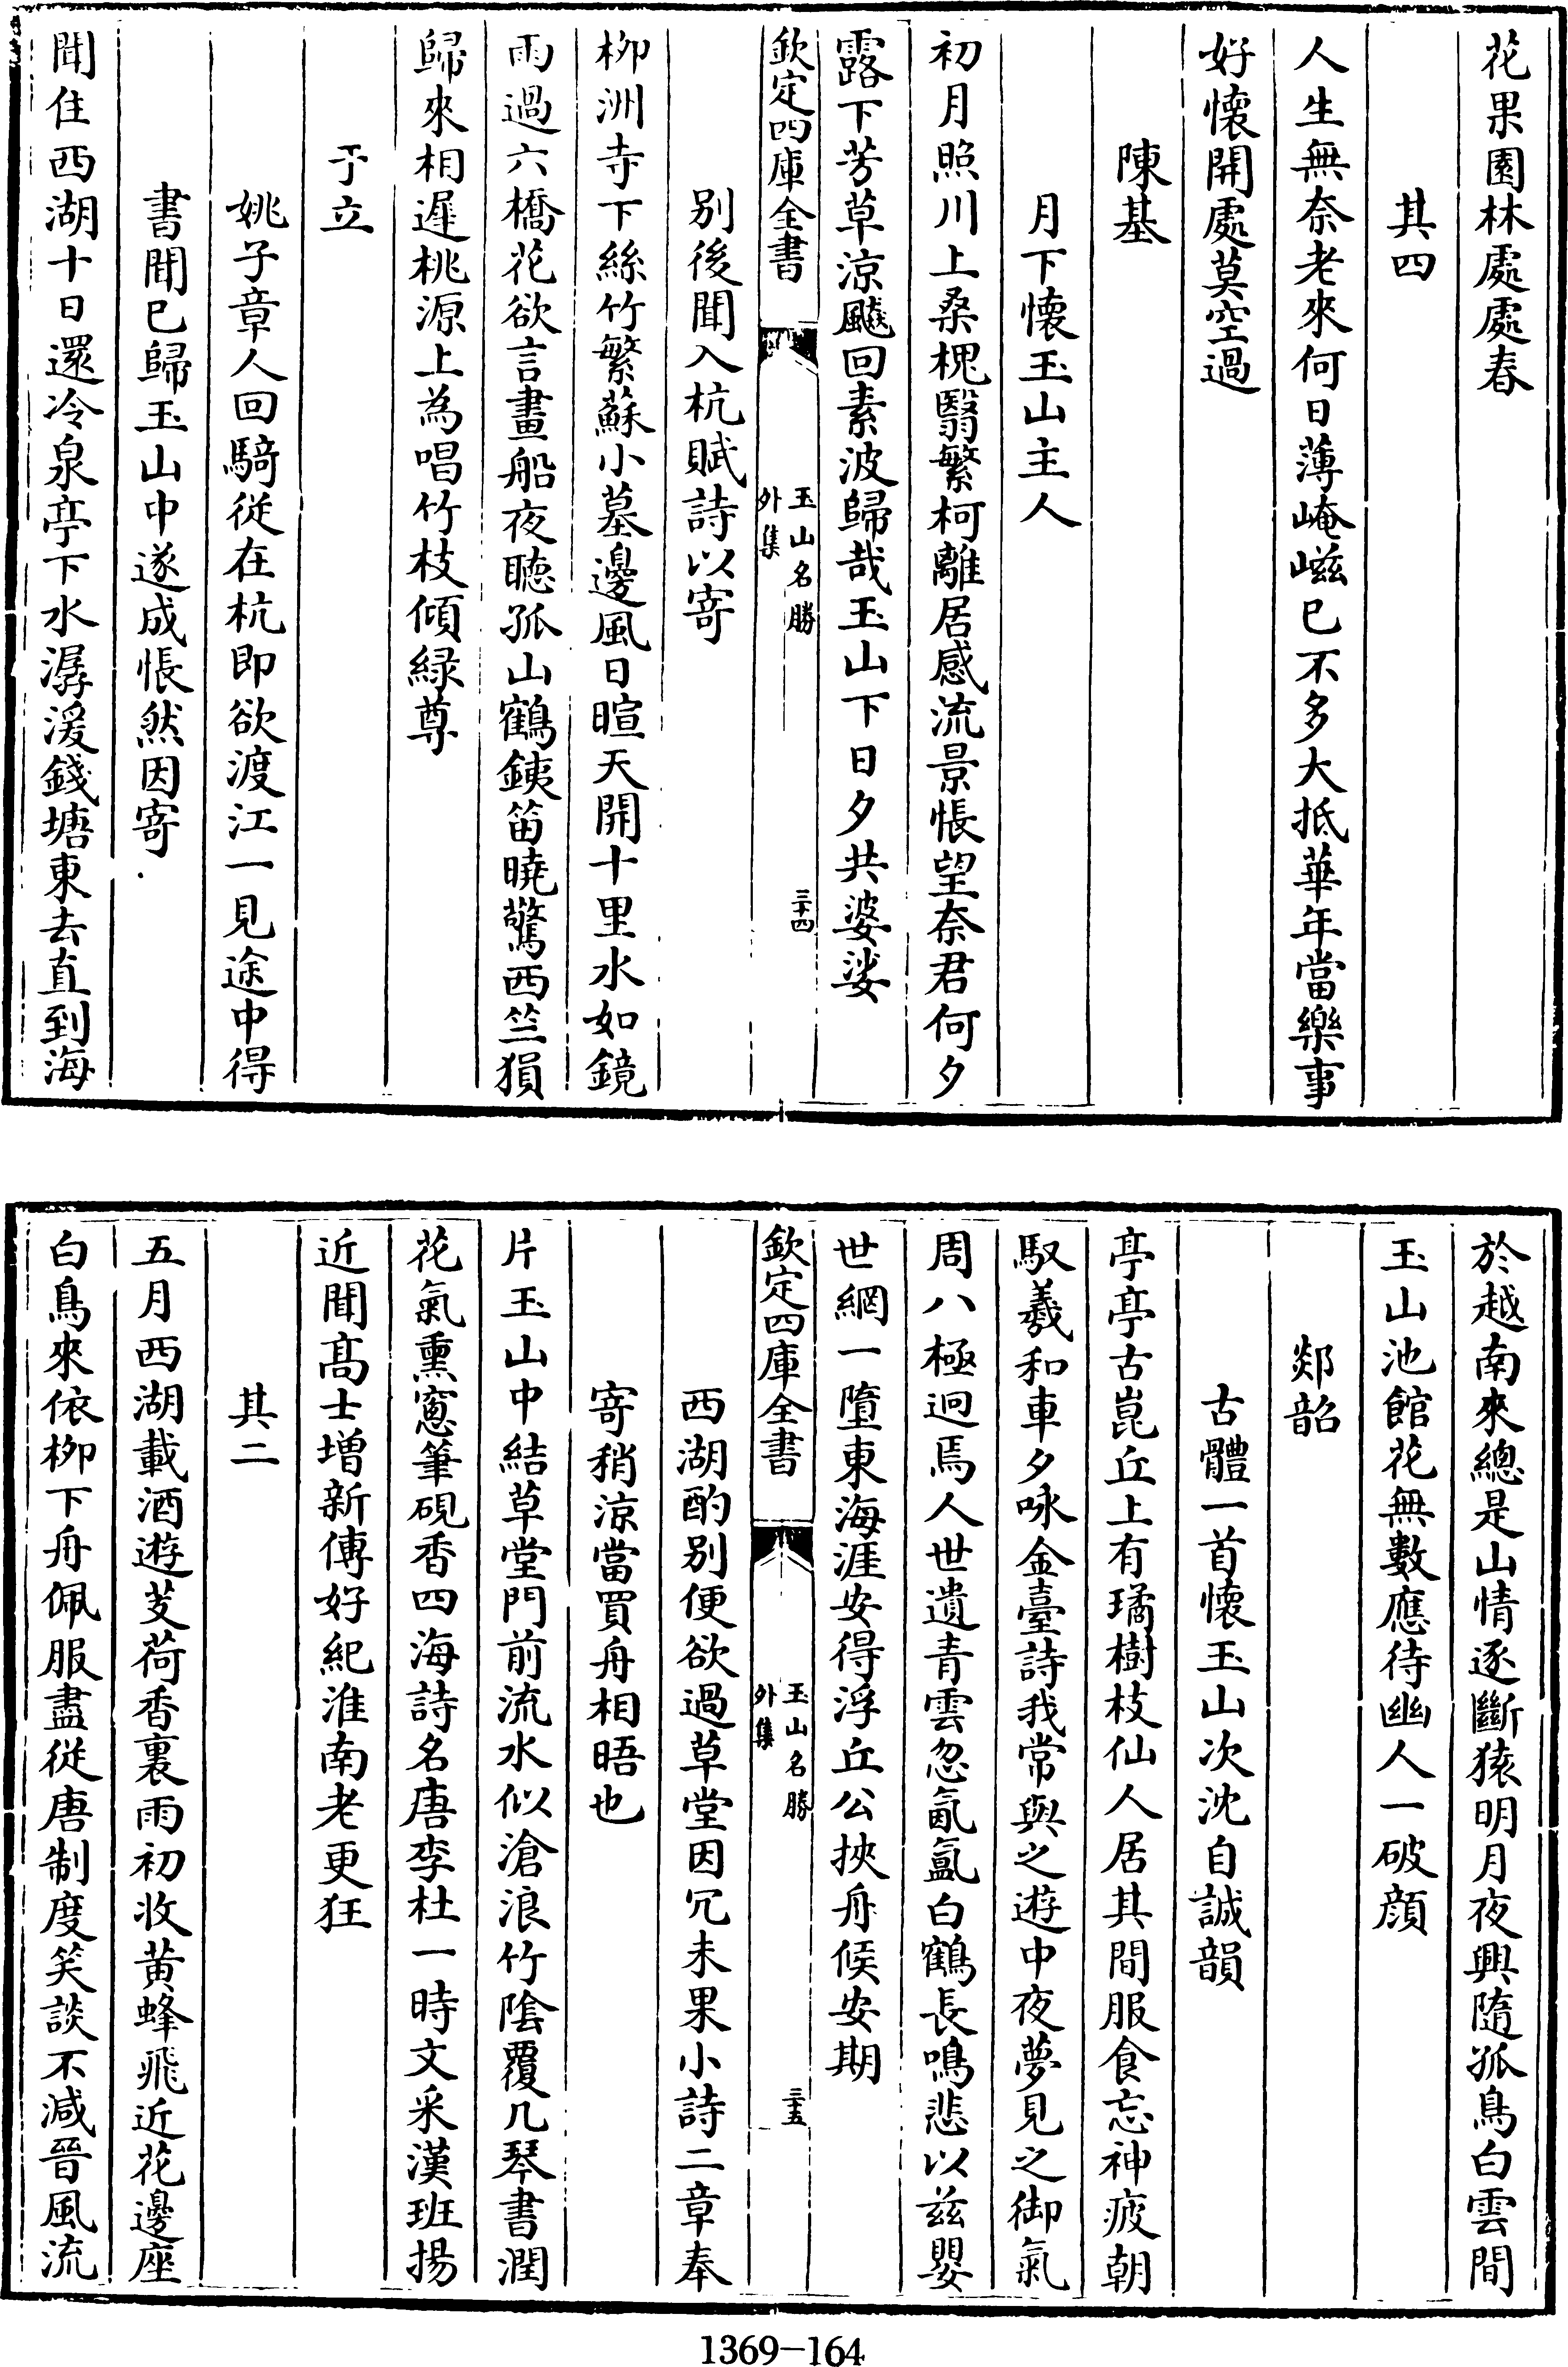 花果園林處處春
其四
人生無奈老來何日薄崦嵫已不多大抵華年當樂事
好懷開處莫空過
陳基
月下懷玉山主人
初月照川上桑槐翳繁柯離居感流景悵望奈君何夕
露下芳草涼飈回素波歸哉玉山下日夕共婆娑
欽定四庫全書
玉山名勝
外集
三十四
別後聞入杭賦詩以寄
栁洲寺下絲竹繁蘇小墓邊風日暄天開十里水如鏡
雨過六橋花欲言畫船夜聽孤山鶴鐵笛曉驚西竺猿
歸來相遲桃源上為唱竹枝傾緑尊
于立
姚子章人回騎從在杭即欲渡江一見途中得
書聞已歸玉山中遂成悵然因寄
聞住西湖十日還冷泉亭下水潺湲錢塘東去直到海
於越南來總是山情逐斷猿明月夜興隨孤鳥白雲間
玉山池館花無數應待幽人一破顔
郯韶
古體一首懷玉山次沈自誠韻
亭亭古崑丘上有璚樹枝仙人居其間服食忘神疲朝
馭羲和車夕咏金臺詩我常與之遊中夜夢見之御氣
周八極迥焉人世遺青雲忽氤氲白鶴長鳴悲以兹嬰
世網一墮東海涯安得浮丘公挾舟候安期
欽定四庫全書
玉山名勝
外集
三十五
西湖酌別便欲過草堂因冗未果小詩二章奉
寄稍涼當買舟相晤也
片玉山中結草堂門前流水似滄浪竹陰覆几琴書潤
花氣熏窻筆硯香四海詩名唐李杜一時文采漢班揚
近聞髙士増新傳好紀淮南老更狂
其二
五月西湖載酒遊芰荷香裏雨初收黄蜂飛近花邊座
白鳥來依栁下舟佩服盡從唐制度笑談不減晉風流
1369-164